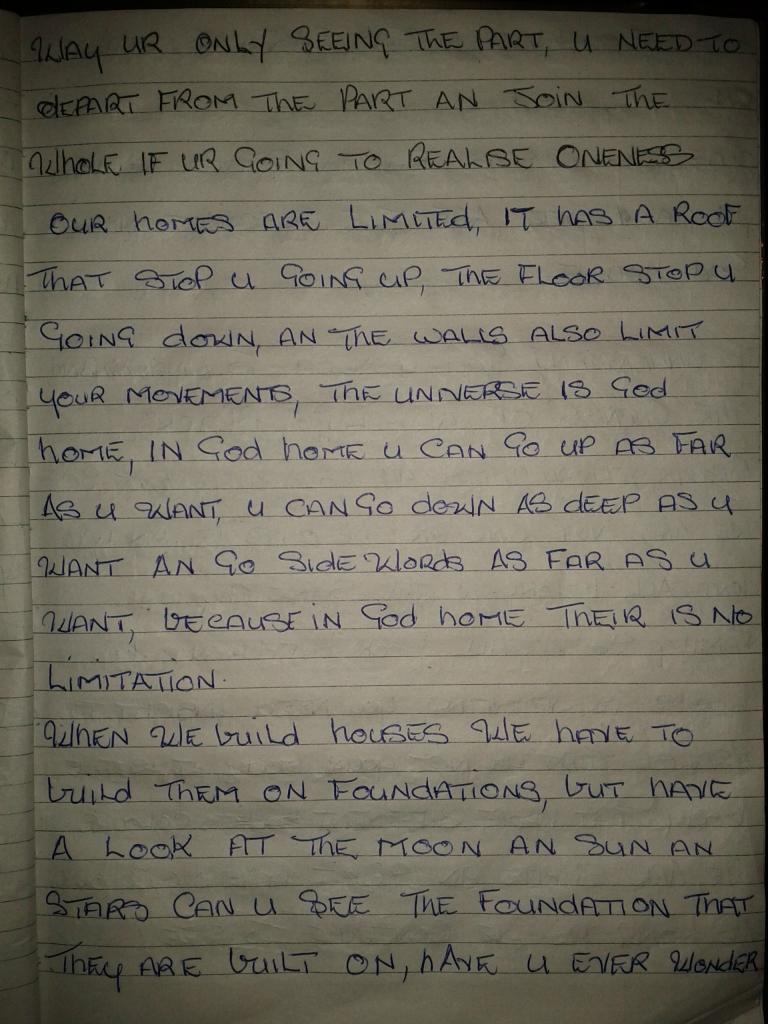 WAY UR ONLY SEEING THE PART, U NEED TO
dEPART FROM THE PART AN JOIN THE
WhOLE IF UR GOING TO REALISE ONENESS
OUR hOMES ARE LIMITED, IT hAS A ROOF
THAT STOP U GOING UP, THE FLOOR STOP U
GOING dOWN, AN THE WALLS ALSO LIMIT
YOUR MOVEMENTS, THE UNIVERSE IS God
hOME, IN God hOME U CAN GO UP AS FAR
AS U WANT, U CAN GO dOWN AS dEEP AS U
WANT AN GO SIdE WORdS AS FAR AS U
WANT, bECAUSE IN God hOME THEIR IS NO
LIMITATION.
WHEN WE buILd hOUSES WE hAVE TO
buILd THEM ON FOUNDATIONS, bUT HAVE
A LOOK AT THE MOON AN SUN AN
STARS CAN U SEE THE FOUNDATION THAT
THEY ARE buILT ON, hAVE U EVER WONDER